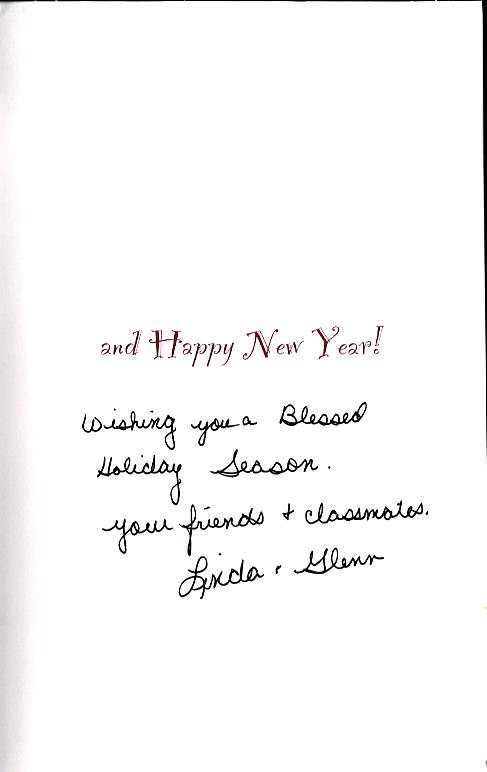 and Happy New Year!
Wishing you a Blessed
Holiday Season.
your friends + classmates.
Linda & Glenn